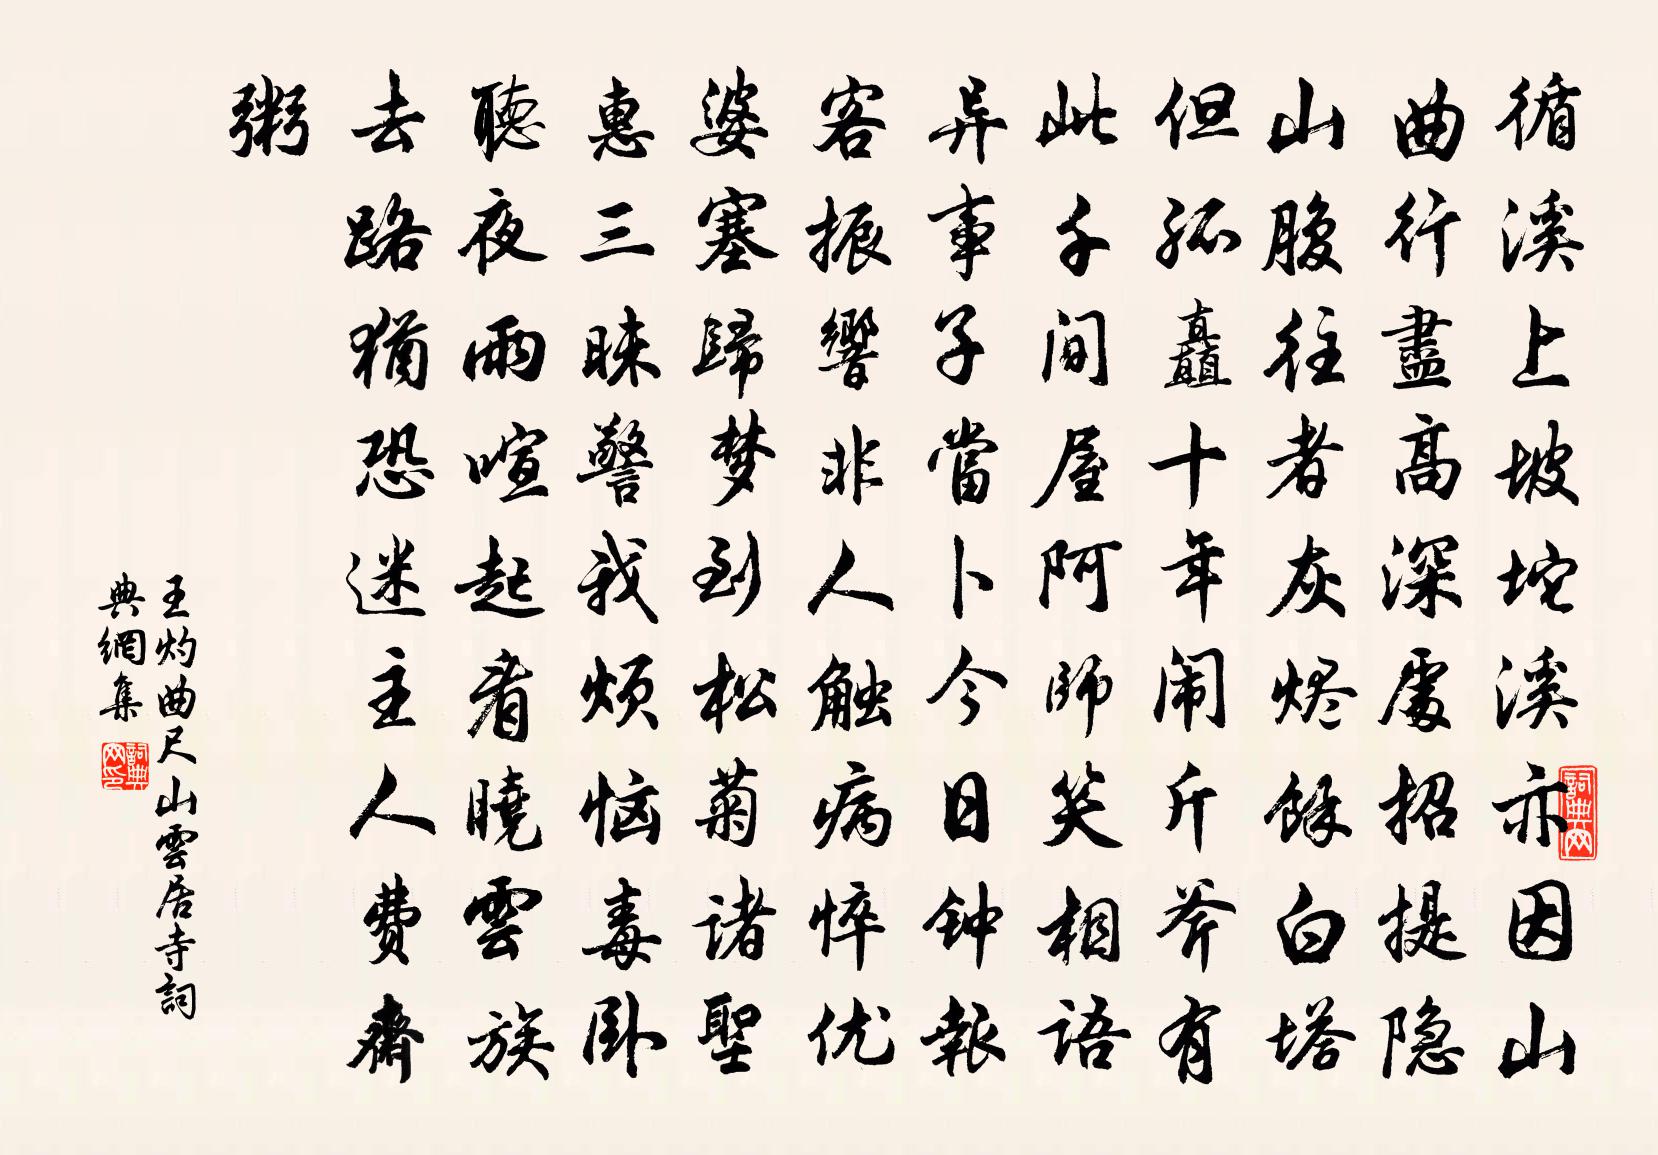 循溪上坡坨溪亦因山
曲行盡高深處招提隐
山腹往者灰烬餘白塔
但孤矗十年闹斤斧有
此千间屋阿師笑相語
异事子當卜今日钟報
客振響非人触病悴优
婆塞歸梦到松菊诸聖
惠三昧警我烦恼毒卧
聽夜雨喧起看曉雲族
去路猶恐迷主人費齋
粥
王灼曲尺山雲居寺詞
典網集
詞典网
詞典网印